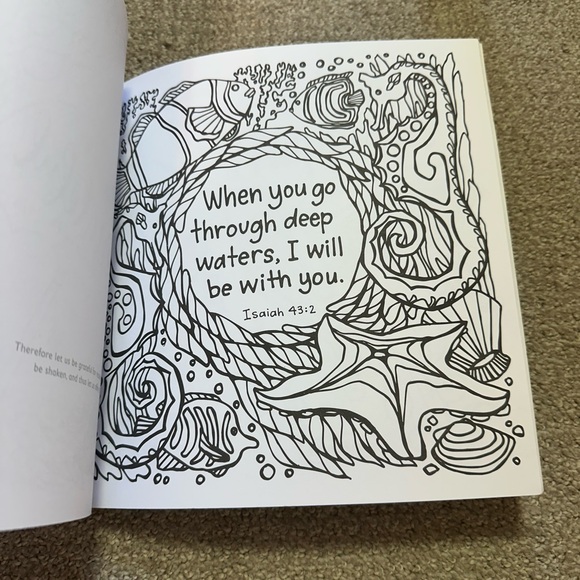 Therefore let us be grateful
be shaken, and thus let us
When you go
through deep
waters, I will
be with you.
Isaiah 43:2